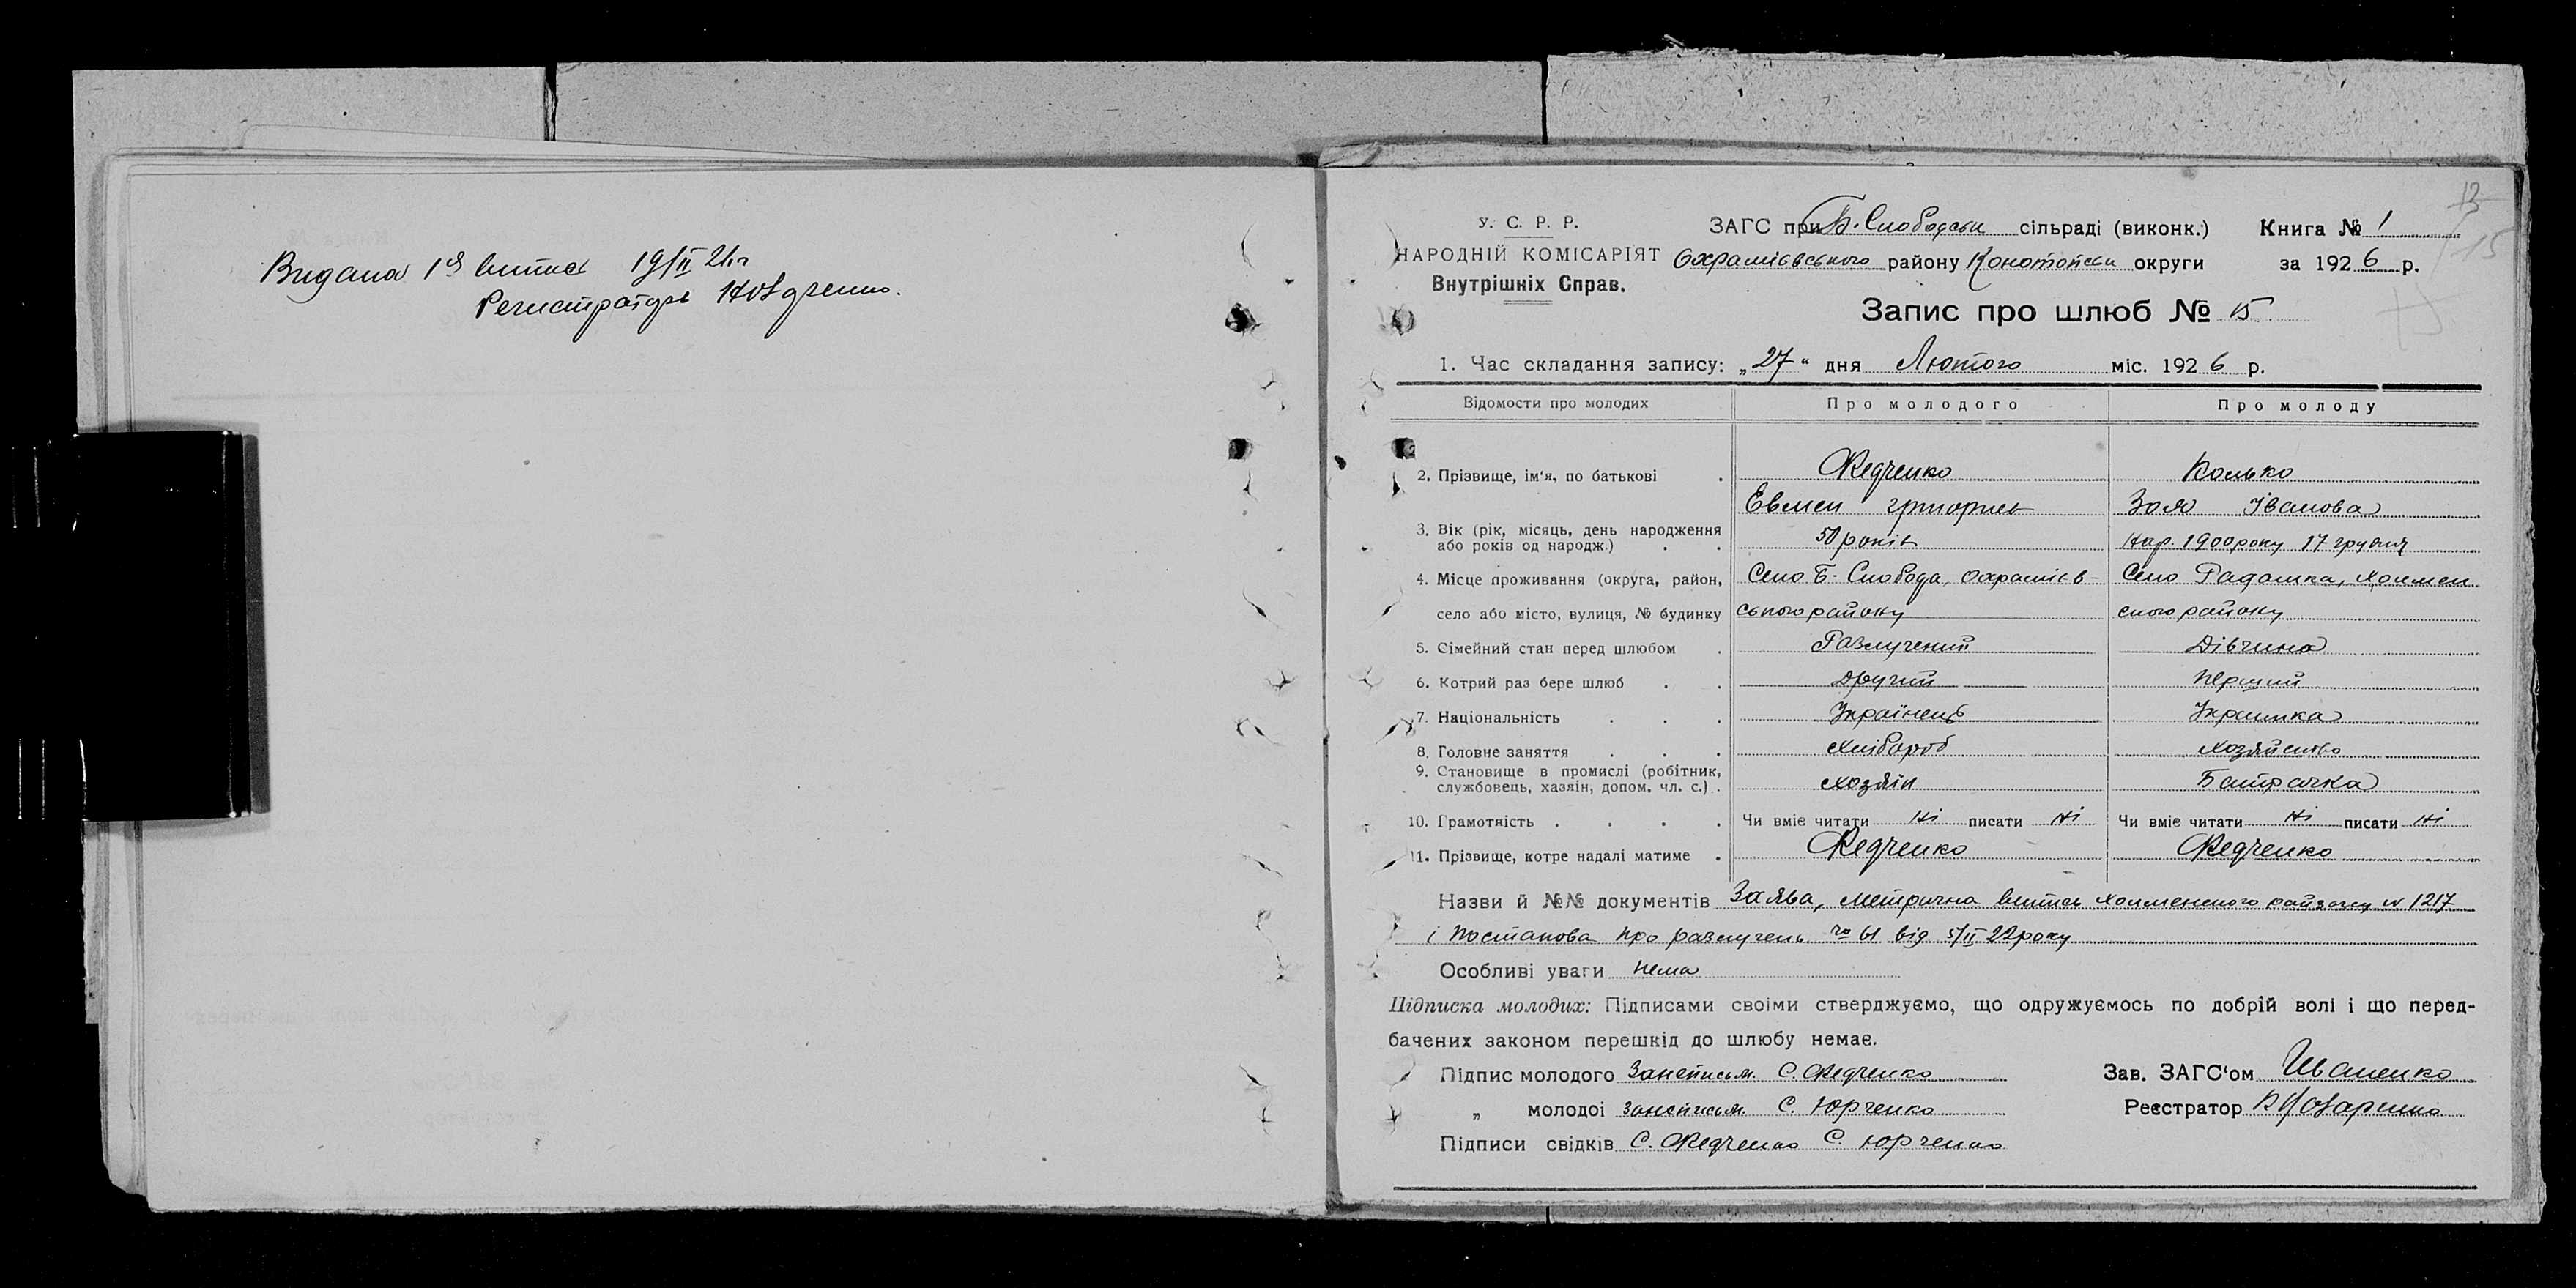 Видана 1й витись 19/II 21 г
Регистраторь
13
15
У. С. Р. Р.
НАРОДНІЙ КОМІСАРІЯТ
Внутрішніх Справ.
ЗАГС при Б. Слободськ сільраді (виконк.) Книга № 1
Охраміевського району Конотопськ округи за 1926 р.
Запис про шлюб № 15
1. Час складання запису: „27“ дня Лютого міс. 1926 р.
Відомости про молодих Про молодого Про молоду
2. Прізвище, ім‘я, по батькові . Федченко Колько
Евмен григориев Зоя Іванова
3. Вік (рік, місяць, день народження
або років од народж.) . . 50 років нар. 1900 року 17 грудня
4. Місце проживання (округа, район, Село Б-Слобода, Охраміев- Село Радомка, Холмен
село або місто, вулиця, № будинку ського району ського району
5. Сімейний стан перед шлюбом . Разлучений Дівчина
6. Котрий раз бере шлюб . . Другий Перший
7. Національність . . . Українець Украинка
8. Головне заняття . . . Хлібороб Хозяйство
9. Становище в промислі (робітник,
службовець, хазяін, допом. чл. с.) . Хозяін Батрачка
10. Грамотність . . . . Чи вміє читати Ні писати Ні Чи вміє читати Ні писати Ні
11. Прізвище, котре надалі матиме . Федченко Федченко
Назви й №№ документів Заява, Метрична витись Холменского райзагсу № 1217
і Постанова про разлучень № 61 від 5/II 22 року
Особливі уваги нема
Підписка молодих: Підписами своіми стверджуємо, що одружуємось по добрій волі і що перед-
бачених законом перешкід до шлюбу немає.
Підпис молодого Занеписьм. С. Федченко Зав. ЗАГС‘ом Иваненко
„ молодоі занеписьм. С. Юрченко Реєстратор
Підписи свідків С. Федченко С. Юрченко